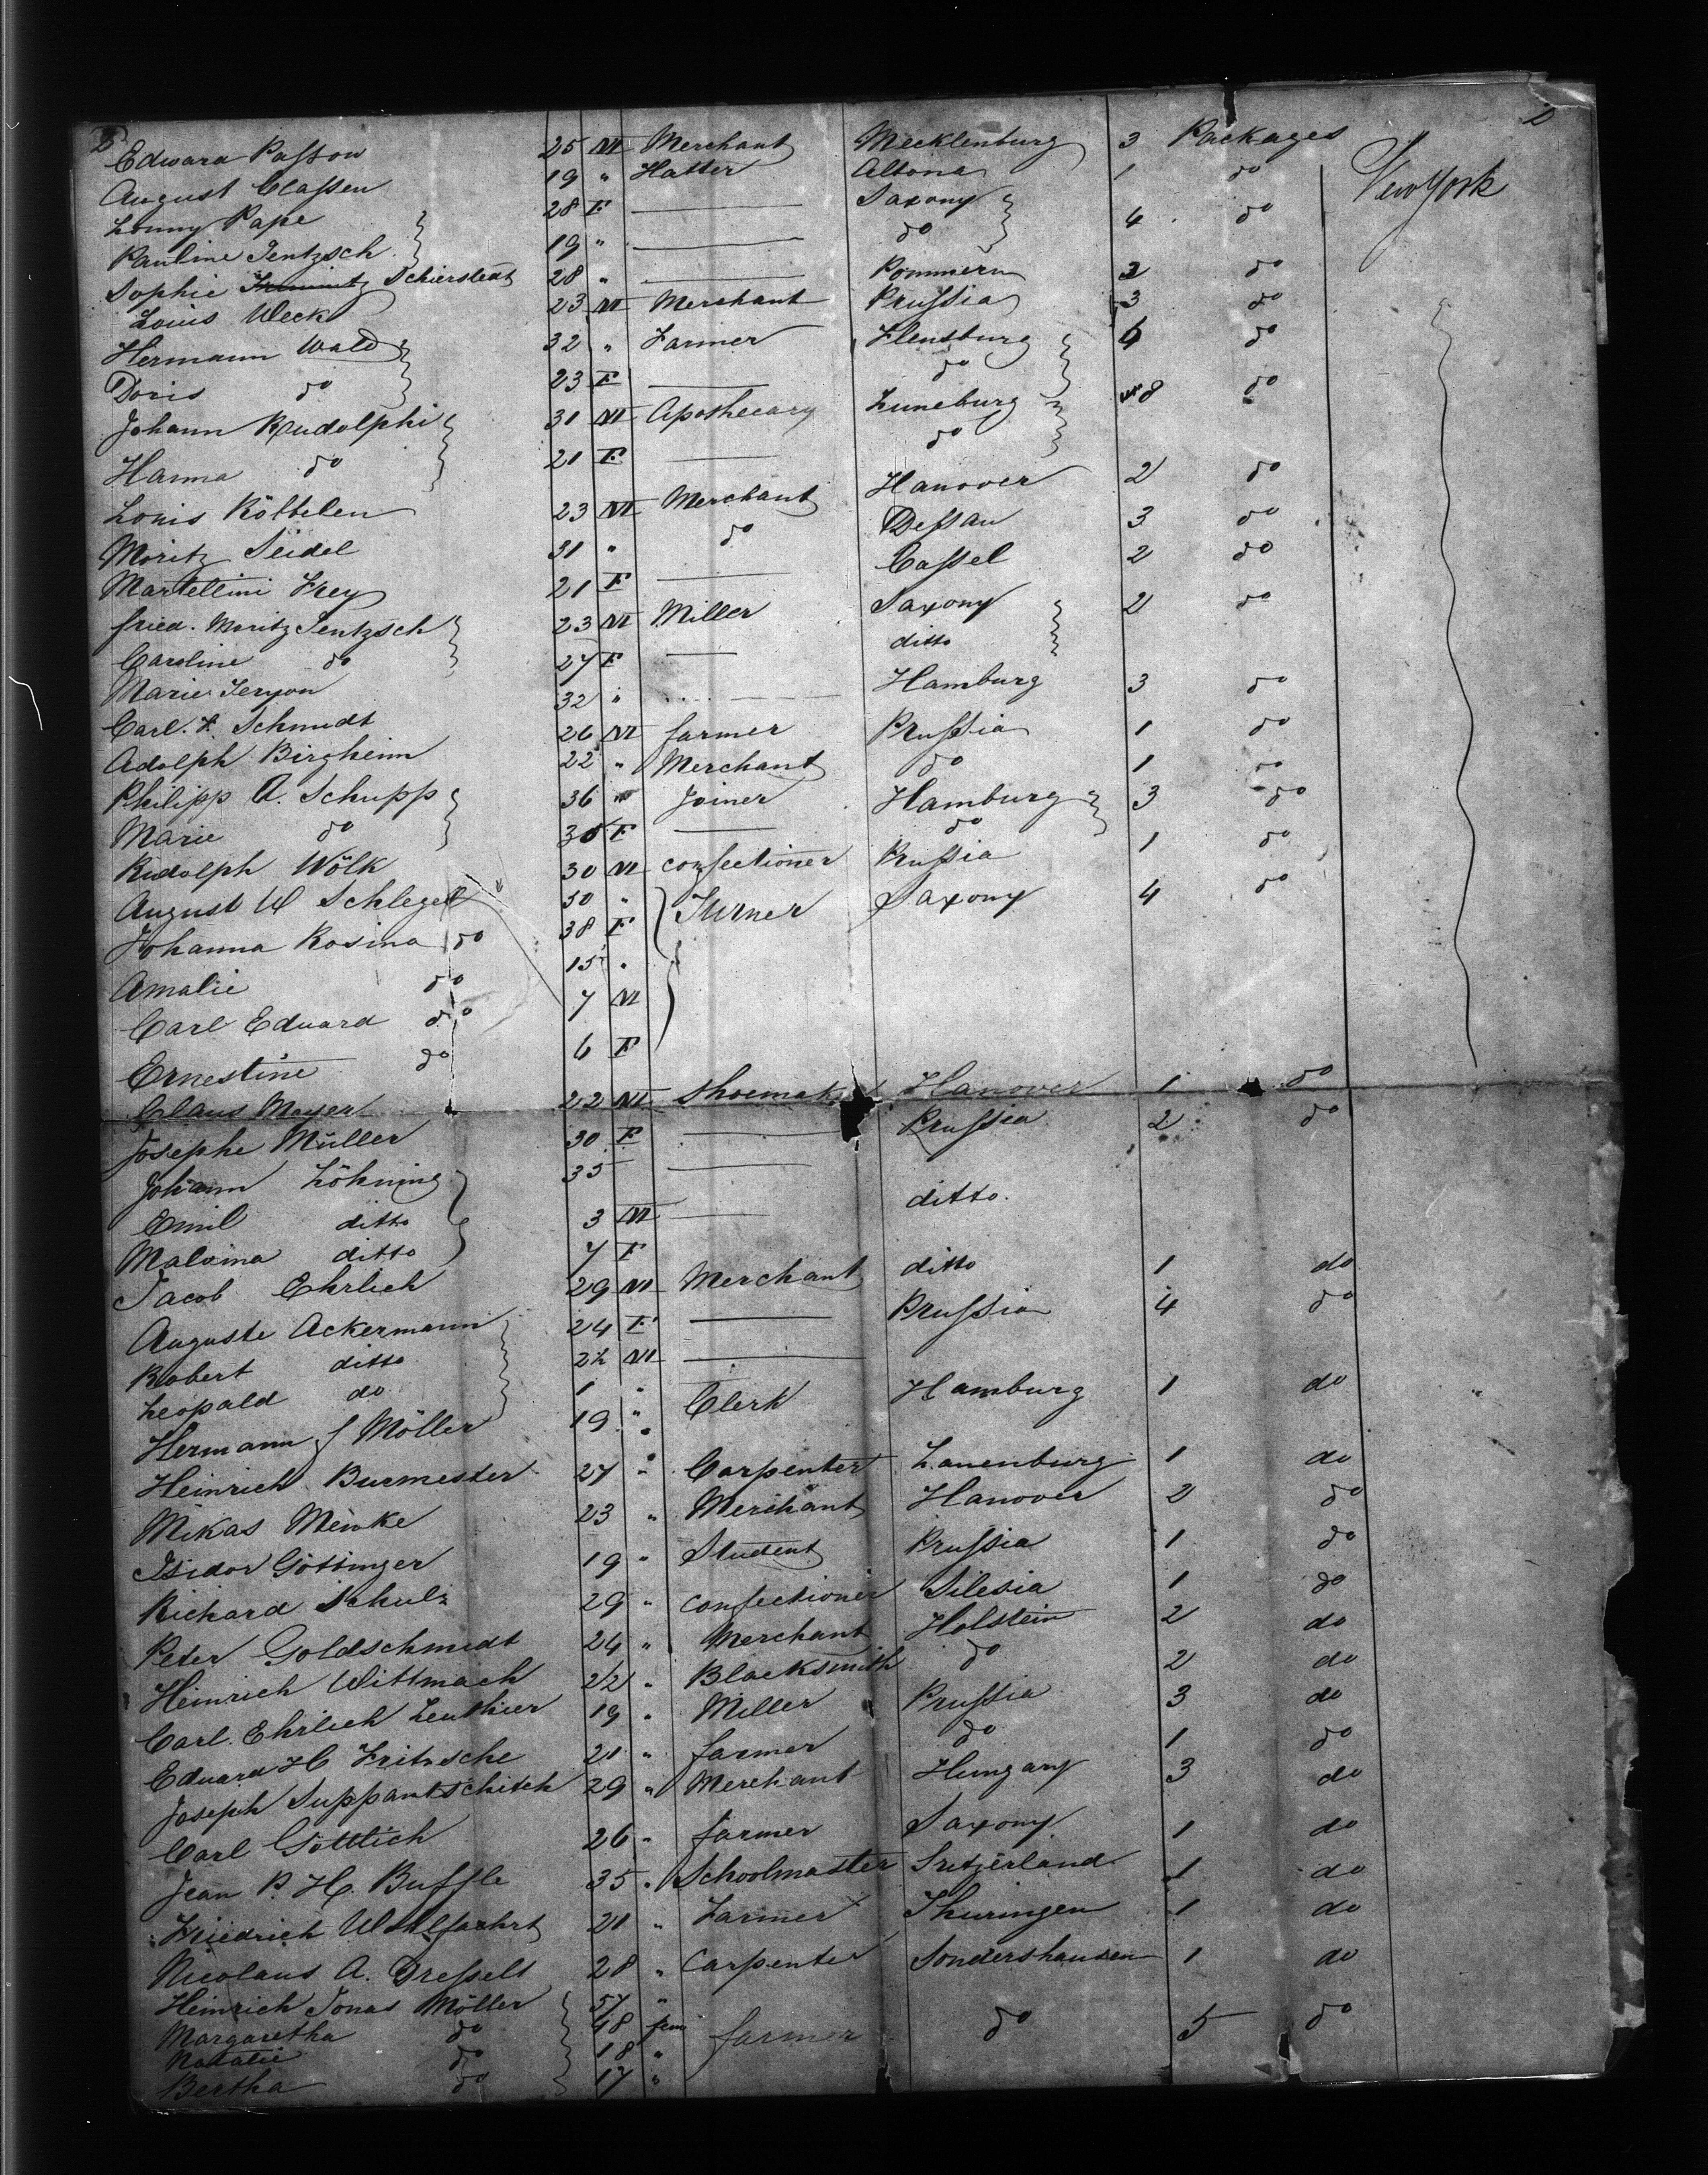 2 2
Edward Passow 25 M Merchant Mecklenburg 3 Packages
August Classen 19 " Hatter Altona 1 do New York
Lonny Pape 28 F — Saxony 4 do
Pauline Jentzsch 19 " — do
Sophie Schierstedt 28 " — Pommern 2 do
Louis Weck 23 M Merchant Prussia 3 do
Hermann Wald 32 " Farmer Flensburg 6 do
Doris do 23 F — do
Johann Rudolphi 31 M Apothecary Luneburg 8 do
Hanna do 21 F — do
Louis Költelen 23 M Merchant Hanover 2 do
Moritz Seidel 31 " do Dessau 3 do
Martellini Frey 21 F — Cassel 2 do
fried. Moritz Jentzsch 23 M Miller Saxony 2 do
Caroline do 27 F — ditto
Marie 32 " — Hamburg 3 do
Carl. F. Schmidt 26 M farmer Prussia 1 do
Adolph Birgheim 22 " Merchant do 1 do
Philipp A. Schupp 36 " Joiner Hamburg 3 do
Marie do 30 F — do
Rudolph Wölk 30 M confectioner Prussia 1 do
August W Schlegel 50 " Turner Saxony 4 do
Johanna Rosina do 38 F
Amalie do 15 "
Carl Eduard do 7 M
Ernestine do 6 F
Claus Meyer 22 M Shoemak Hanover 1 do
Josephe Müller 30 F — Prussia 2 do
Johann Löhning 35 —
Emil ditto 3 M — ditto.
Malvina ditto 7 F
Jacob Ehrlich 29 M Merchant ditto 1 do
Auguste Ackermann 24 F — Prussia 4 do
Robert ditto 2½ M —
Leopald do 1 "
Hermann J Möller 19 " Clerk Hamburg 1 do
Heinrich Burmester 27 " Carpenter Lauenburg 1 do
Mikas Mewke 23 " Merchant Hanover 2 do
Isidor Göttinger 19 " Student Prussia 1 do
Richard Schulz 29 " confectioner Silesia 1 do
Peter Goldschmidt 24 " Merchant Holstein 2 do
Heinrich Wittmach 22 " Blacksmith do 2 do
Carl. Ehrlich Leuthier 19 " Miller Prussia 3 do
Eduard H Fritzsche 21 " farmer do 1 do
Joseph Suppantschitch 29 " Merchant Hungary 3 do
Carl Göttlich 26 " farmer Saxony 1 do
Jean P. H. Buffle 35 " Schoolmaster Sutzerland 1 do
Friedrich Wohlfaahrt 21 " Farmer Thuringen 1 do
Nicolaus A. Dresselt 28 " Carpenter Sondershausen 1 do
Heinrich Jonas Möller 57 "
Margaretha do 48 fem farmer do 5 do
Natalie do 18 "
Bertha do 17 "